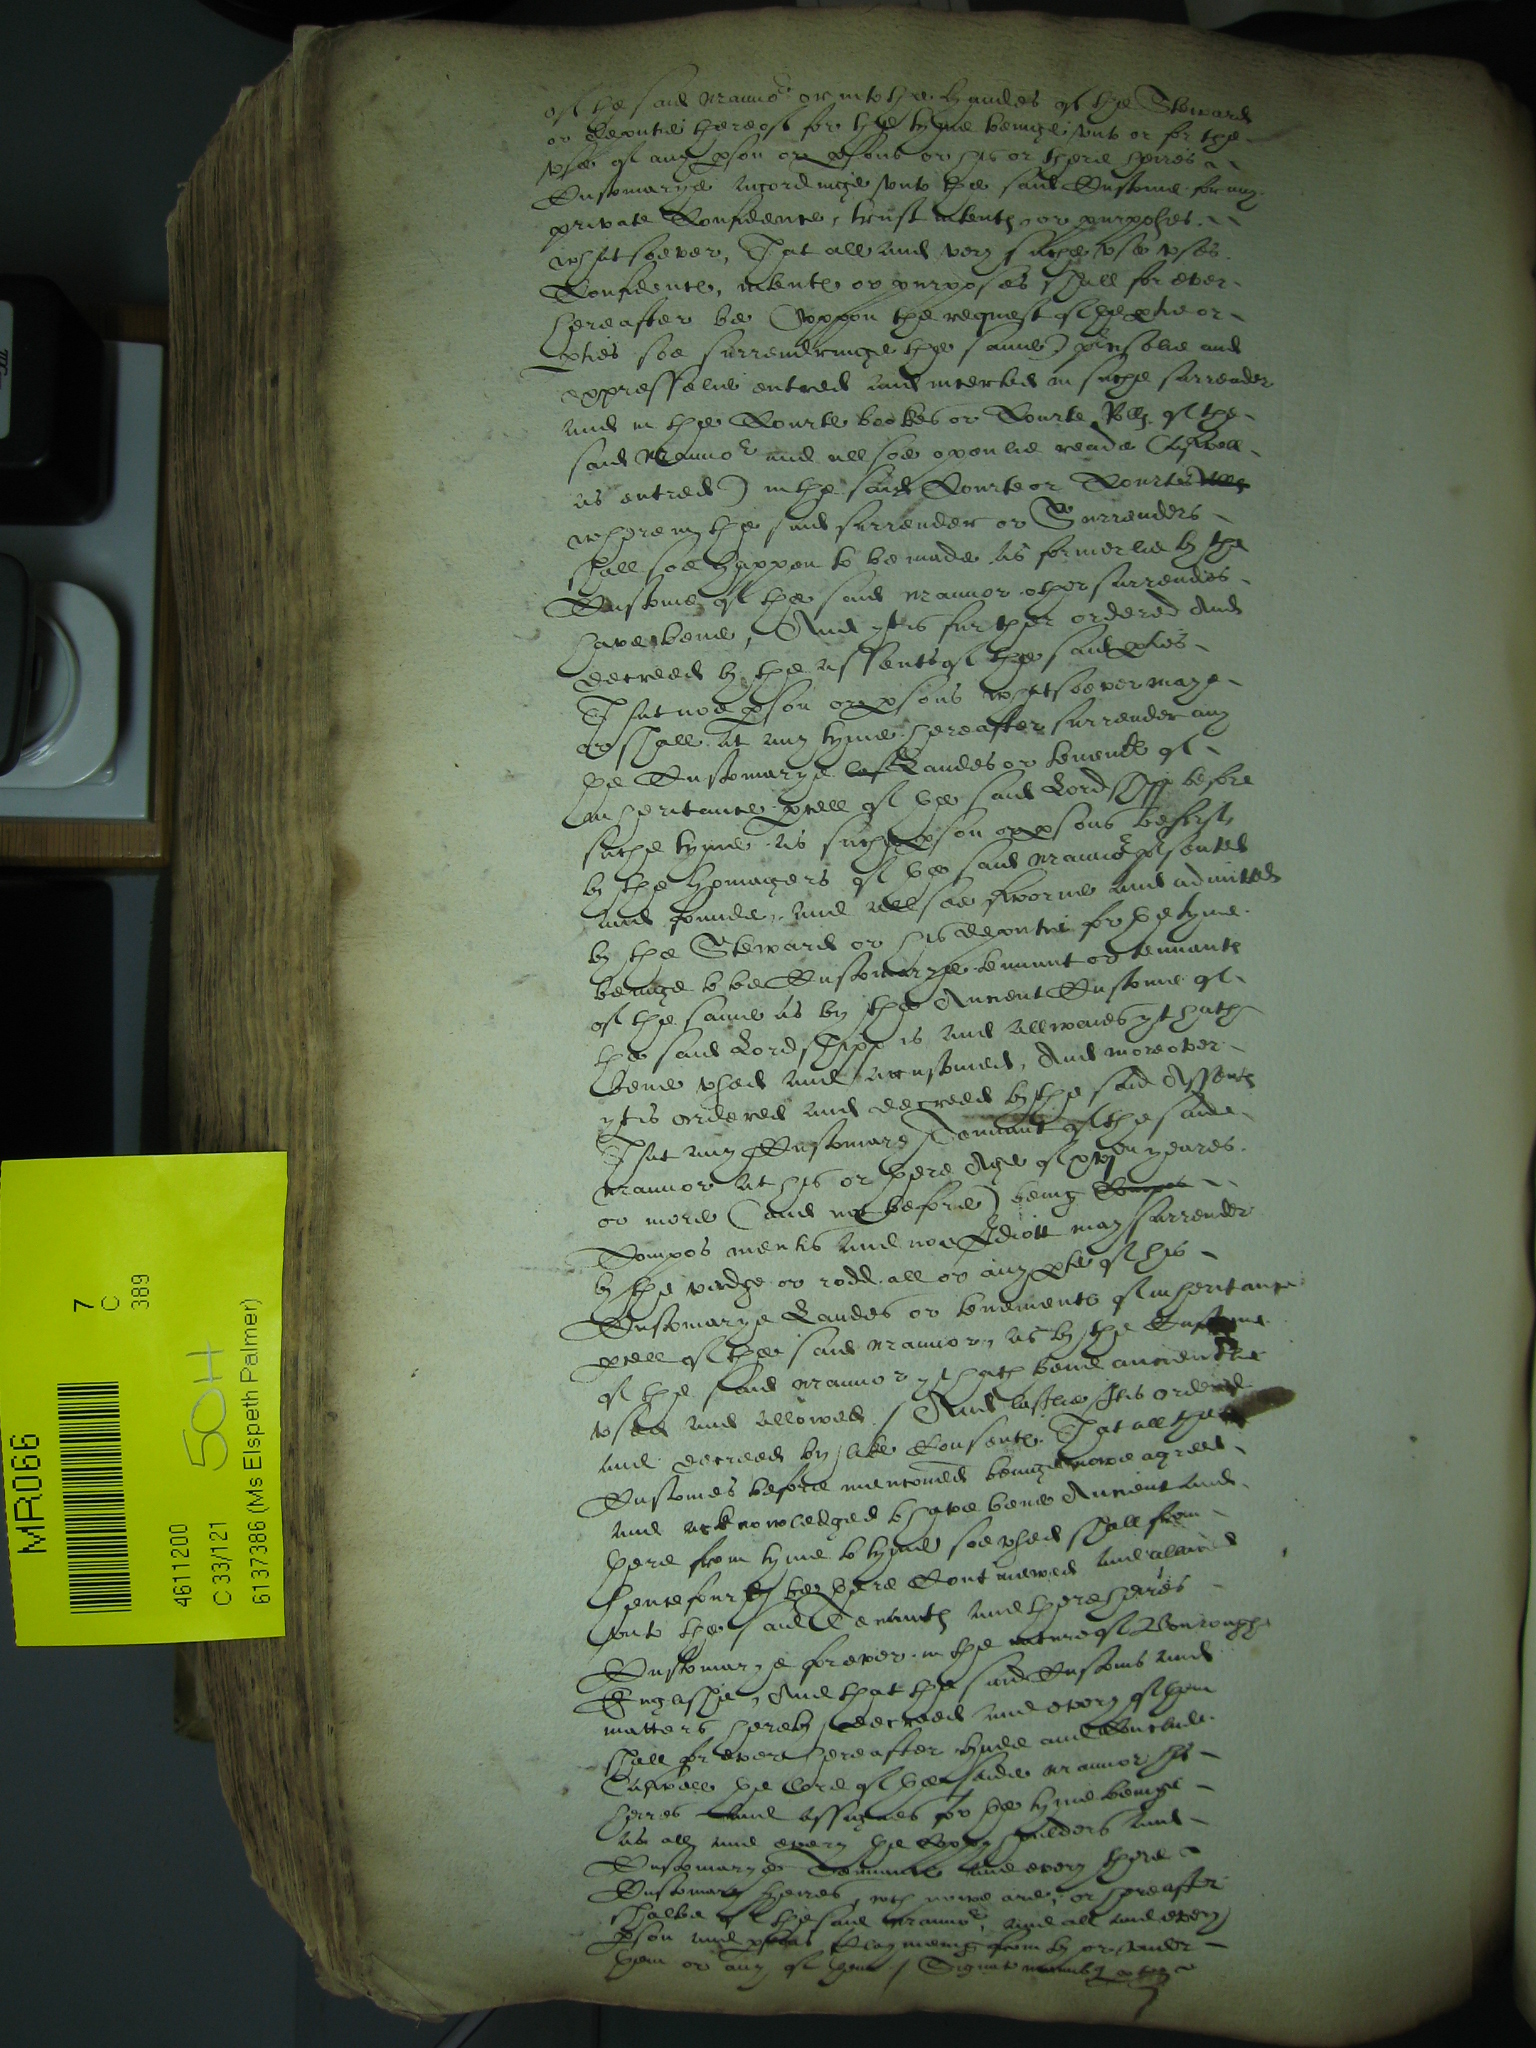 of the said Manno^r or into the handes of the Steward
or deputie thereof for the tyme beinge unto or for the
vse of any pson or psons or his or there heires
Customarye accordinge unto the said Custome for any
private Confidence, trust intente or purposes
whatsoever, That all and very suche vse vses
Confidence, intente or purposes shall for ever
hereafter be (vppon the request of the ptie or
pties soe surrendringe the same) and
expresselie entred and incerted in suche surrender
and in the Courte bookes or Courte Rolles of the
said Manno^r and allsoe openlie reade (aswell
as entred) in the said Courte or Courtes
wherein the said surrender or Surrenders
shall soe happen to be made as formerlie by the
Custome of the said Mannor other surrenders
have bene, And yt is further ordered And
decreed by the assents of the said pties
That noe pson or psons whatsoever maye
or shall at any tyme hereafter surrender any
the Customarye Landes or tenemts of
inheritance pcell of the said Lordshipp before
suche tyme as suche pson or psons be first
by the homagers of the said Manno^r psented
and founde, and allsoe sworne and admitted
by the Steward or his deputie for the tyme
beinge to be Customarye tennant or tennants
of the same as by the Ancient Custome of
the said Lordshipp is and allwaies yt hath
bene vsed and accustomed, And moreover
yt is ordered and decreed by the said Assents
That any Customary Tennant of the saide
Mannor at his or there Age of yeares
or more (and not before) being Compos
Compos mentis and noe Idiott may surrender
by the virdge or rodd all or any pte of his
Customarye Landes or tenements of inheritance
pcell of the said Mannor, as by the Custome
of the said Mannor yt hath bene ancientlie
vsed and allowed / And lastlie It is ordered
and decreed by like Consente That all the
Customes before mencioned beinge nowe agreed
and acknowledged to have bene Ancient and
there from tyme to tyme soe vsed shall from
henceforth be there Contynewed and allowed
unto the said Tenants and there heires
Customarye forever in the nature of Borrough
Englishe, And that the said Customs and
matters hereby decreed and every of them
shall for ever hereafter bynde and Conclude
(aswell the lord of the saide Mannor his
heires and assignes for the tyme beinge
as all and every the Coppyhoulders and
Customarye Tennants and every there
Customary heires, wch nowe are, or hereafter
shalbe of the said Manno^r, and all and every
pson and psons Clayminge from by or vnder
them or any of them /
MR066
4611200
C 33/121
6137386 (Ms Elspeth Palmer)
7
C
389
50H